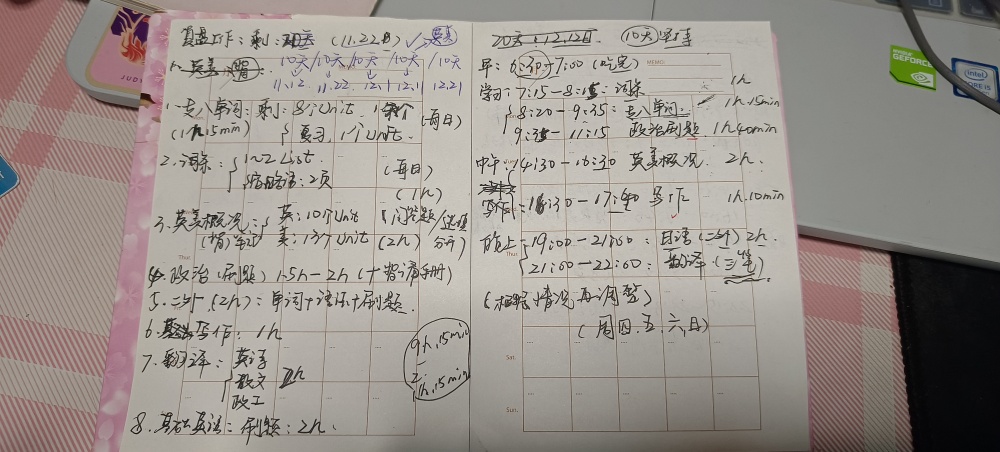 复盘工作：剩：30天 (11.22日) ✓ 英美
10天/10天/10天/10天/10天
11.12. 11.22. 12.1 12.11 12.21
1.专八单词：剩：8个Unit. (每日)
(1h15min) 复习.1个Unit.
2.词条：1~2 List. (每日)
缩略语：2页 (1h)
3.英美概况：英：10个Unit 问答题/选填
(背)笔记 美：13个Unit (2h) 分开
4.政治(刷题) 1.5h-2h
5.二外 (2h)：单词+语法+刷题.
6.写作：1h
7.翻译：英语
散文 2h
政工
8.基础英语：刷题：2h.
9h.15min
2:
1h.15min
20天 12.12日. 10天
早：6:30-7:00 (吃完)
MEMO
学习：7:15-8:15：词条 1h
8:20-9:35：专八单词. 1h.15min
9:35-11:15 政治刷题 1h40min
中午：14:30-16:30 英美概况. 2h.
写作：16:30-17:40 写作 1h.10min
晚上：19:00-21:00：日语(二外) 2h.
21:00-22:00：翻译(三笔)
(根据情况再调整)
(周四.五.六.日)
Thu.
Thu.
Sat.
Sun.
JUDY
NVIDIA
GEFORCE
intel
CORE i5